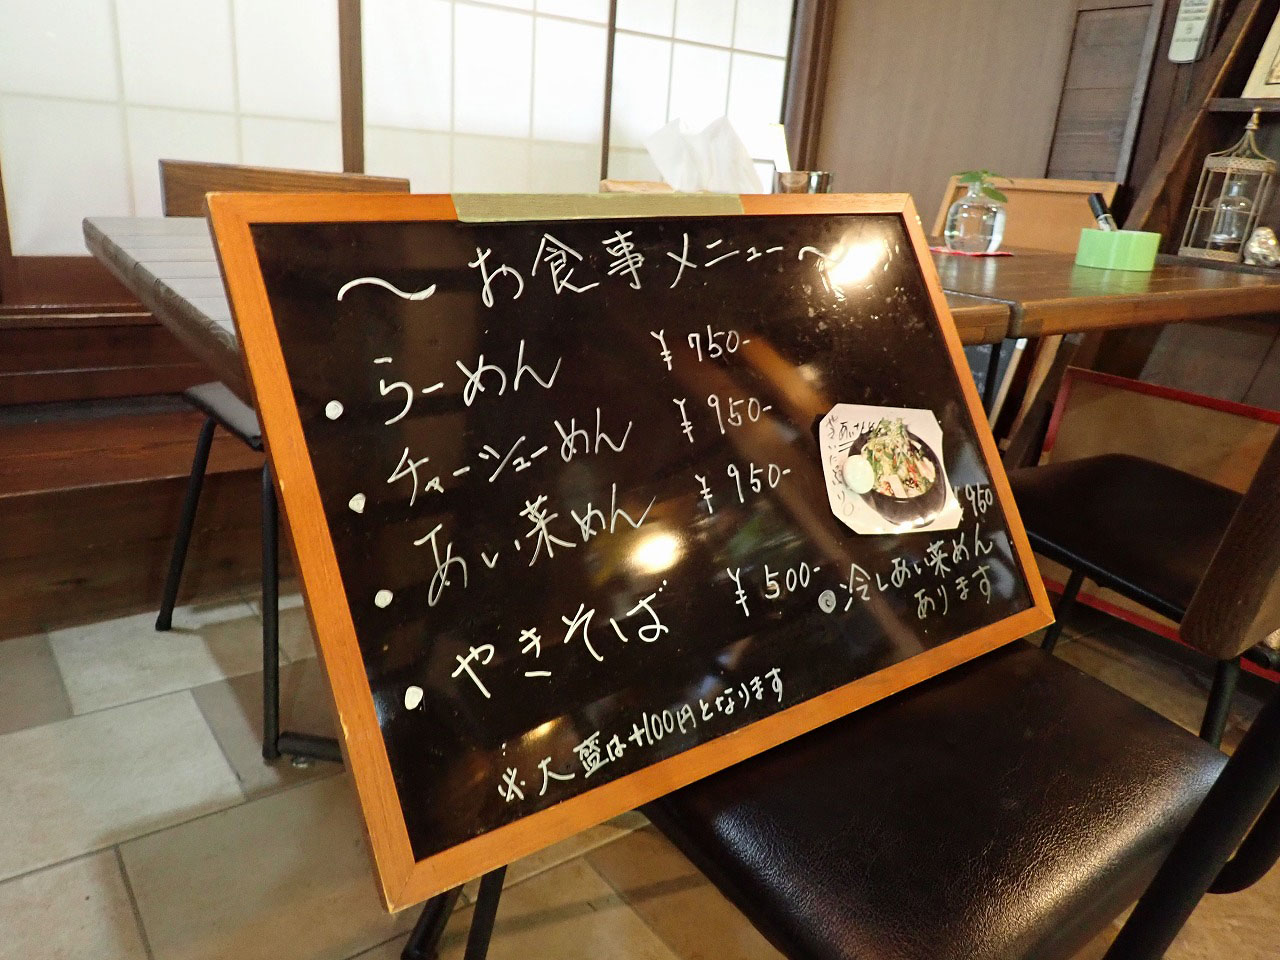 〜お食事メニュー〜
• らーめん ¥750-
• チャーシューめん ¥950-
• あい菜めん ¥950-
• やきそば ¥500-
※大盛は+100円となります
¥950
◎冷しあい菜めん
あります